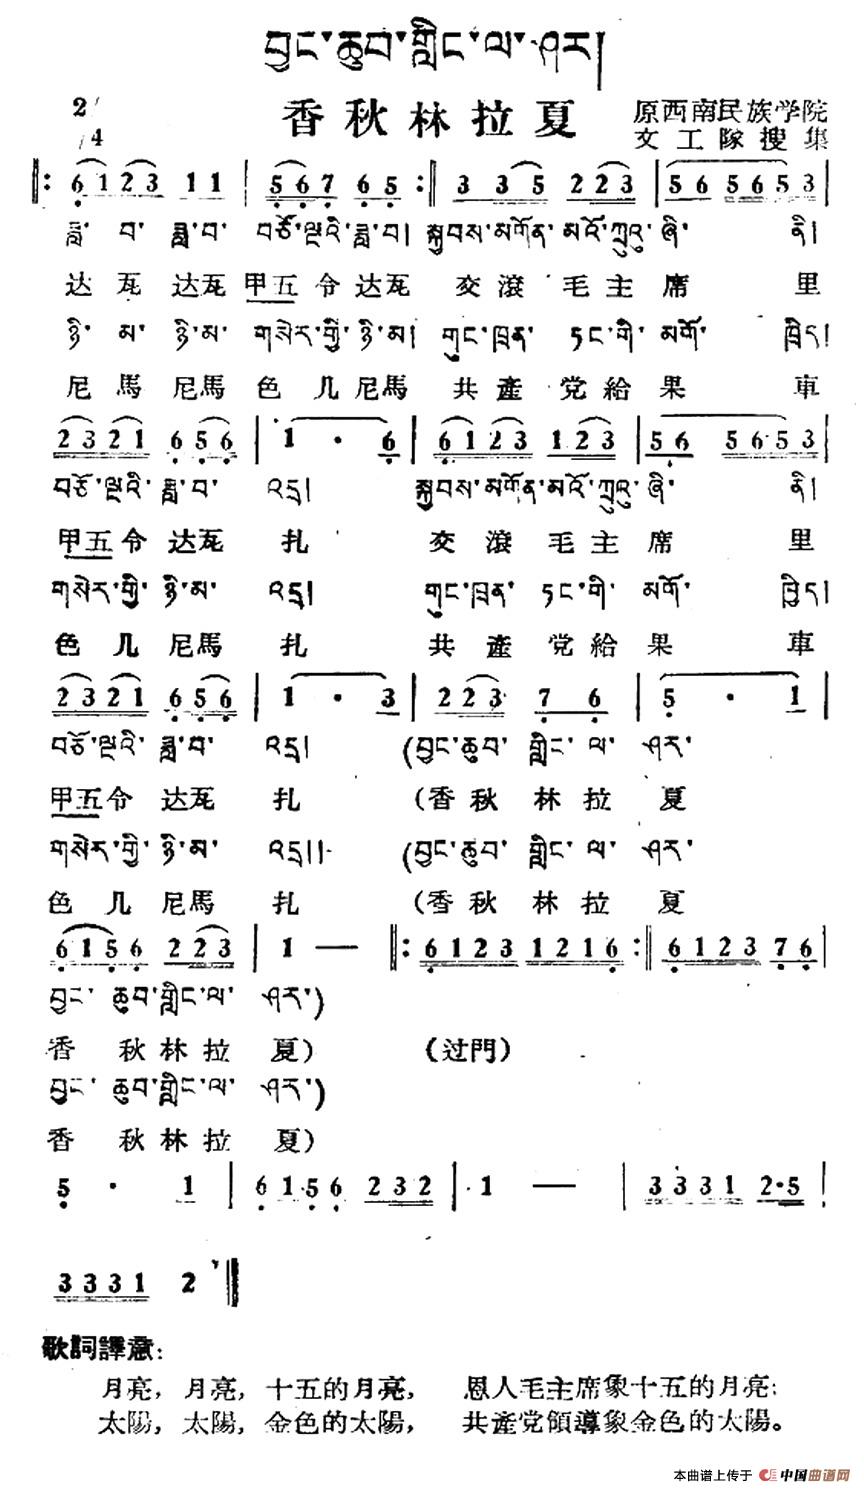 བྱང་ཆུབ་གླིང་ལ་ཤར།
2/4
香秋林拉夏
原西南民族学院
文工隊搜集
6 1 2 3 1 1 | 5 6 7 6 5 :| 3 3 5 2 2 3 | 5 6 5 6 5 3
ཟླ་བ་ཟླ་བ་བཅོ་ལྔའི་ཟླ་བ། སྐྱབས་མགོན་མའོ་ཀྲུའུ་ཞི་ནི།
达瓦达瓦甲五令达瓦交滾毛主席里
ཉི་མ་ཉི་མ་གསེར་གྱི་ཉི་མ། གུང་ཁྲན་ཏང་གི་མགོ་ཁྲིད།
尼馬尼馬色几尼馬共產党給果車
2 3 2 1 6 5 6 | 1 · 6 | 6 1 2 3 1 2 3 | 5 6 5 6 5 3
བཅོ་ལྔའི་ཟླ་བ་འདྲ། སྐྱབས་མགོན་མའོ་ཀྲུའུ་ཞི་ནི།
甲五令达瓦扎交滾毛主席里
གསེར་གྱི་ཉི་མ་འདྲ། གུང་ཁྲན་ཏང་གི་མགོ་ཁྲིད།
色几尼馬扎共產党給果車
2 3 2 1 6 5 6 | 1 · 3 | 2 2 3 7 6 | 5 · 1 |
བཅོ་ལྔའི་ཟླ་བ་འདྲ། (བྱང་ཆུབ་གླིང་ལ་ཤར་
甲五令达瓦扎(香秋林拉夏
གསེར་གྱི་ཉི་མ་འདྲ།། (བྱང་ཆུབ་གླིང་ལ་ཤར་
色几尼馬扎(香秋林拉夏
6 1 5 6 2 2 3 | 1 — |: 6 1 2 3 1 2 1 6 :| 6 1 2 3 7 6 |
བྱང་ཆུབ་གླིང་ལ་ཤར་)
香秋林拉夏) (过門)
བྱང་ཆུབ་གླིང་ལ་ཤར་)
香秋林拉夏)
5 · 1 | 6 1 5 6 2 3 2 | 1 — | 3 3 3 1 2·5 |
3 3 3 1 2
歌詞譯意:
月亮，月亮，十五的月亮，恩人毛主席象十五的月亮；
太陽，太陽，金色的太陽，共產党領導象金色的太陽。
本曲谱上传于 中国曲谱网